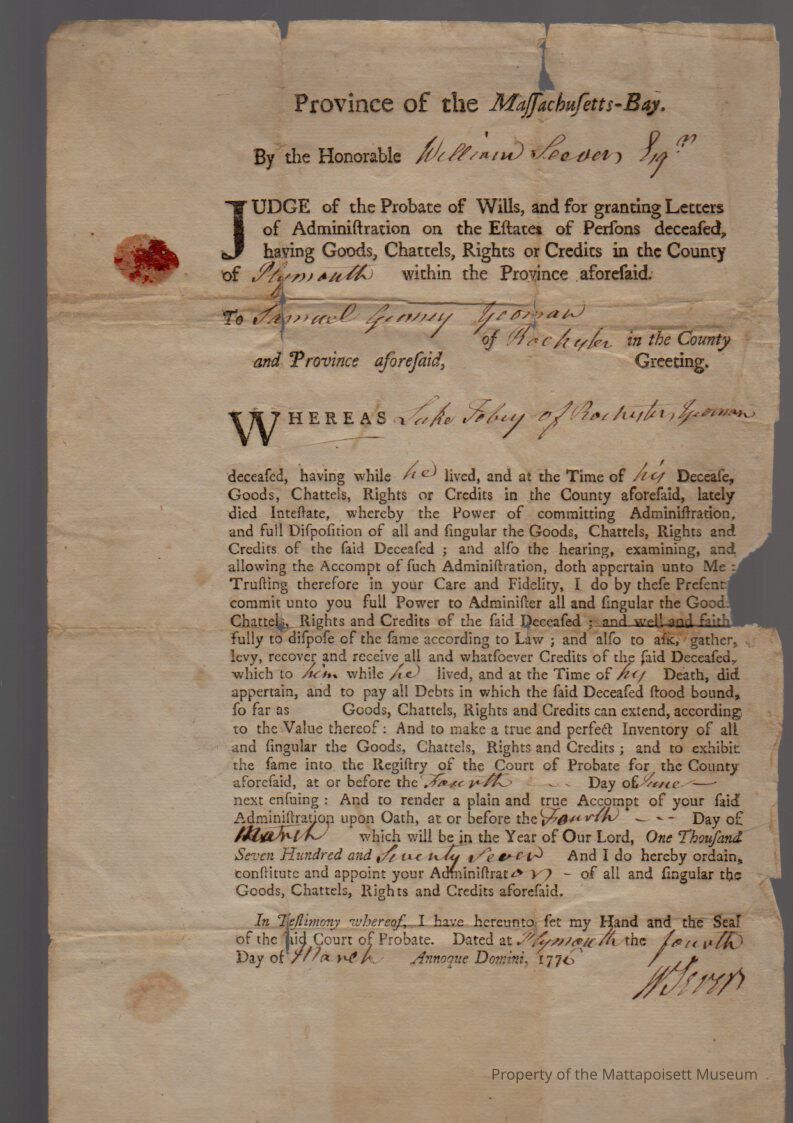 Province of the Maſſachuſetts-Bay.
By the Honorable William Seever Esqr
JUDGE of the Probate of Wills, and for granting Letters
of Adminiſtration on the Eſtates of Perſons deceaſed,
having Goods, Chattels, Rights or Credits in the County
of Plymouth within the Province aforeſaid.
To Samuel Yeoman
of Rochester in the County
and Province aforeſaid, Greeting.
WHEREAS Luke Tobey of Rochester, Yeoman
deceaſed, having while he lived, and at the Time of his Deceaſe,
Goods, Chattels, Rights or Credits in the County aforeſaid, lately
died Inteſtate, whereby the Power of committing Adminiſtration,
and full Diſpoſition of all and ſingular the Goods, Chattels, Rights and
Credits of the ſaid Deceaſed ; and alſo the hearing, examining, and
allowing the Accompt of ſuch Adminiſtration, doth appertain unto Me :
Truſting therefore in your Care and Fidelity, I do by theſe Preſent
commit unto you full Power to Adminiſter all and ſingular the Good
Chattels, Rights and Credits of the ſaid Deceaſed ; and well and faith
fully to diſpoſe of the ſame according to Law ; and alſo to aſk, gather,
levy, recover and receive all and whatſoever Credits of the ſaid Deceaſed,
which to him while he lived, and at the Time of his Death, did
appertain, and to pay all Debts in which the ſaid Deceaſed ſtood bound,
ſo far as Goods, Chattels, Rights and Credits can extend, according
to the Value thereof : And to make a true and perfect Inventory of all
and ſingular the Goods, Chattels, Rights and Credits ; and to exhibit
the ſame into the Regiſtry of the Court of Probate for the County
aforeſaid, at or before the Fourth - - Day of June
next enſuing : And to render a plain and true Accompt of your ſaid
Adminiſtration upon Oath, at or before the Fourth - - - Day of
March which will be in the Year of Our Lord, One Thouſand
Seven Hundred and Seventy Seven And I do hereby ordain,
conſtitute and appoint your Adminiſtrator - of all and ſingular the
Goods, Chattels, Rights and Credits aforeſaid.
In Teſtimony whereof, I have hereunto ſet my Hand and the Seal
of the ſaid Court of Probate. Dated at Plymouth the fourth
Day of March Annoque Domini, 1776
W Sever
Property of the Mattapoisett Museum